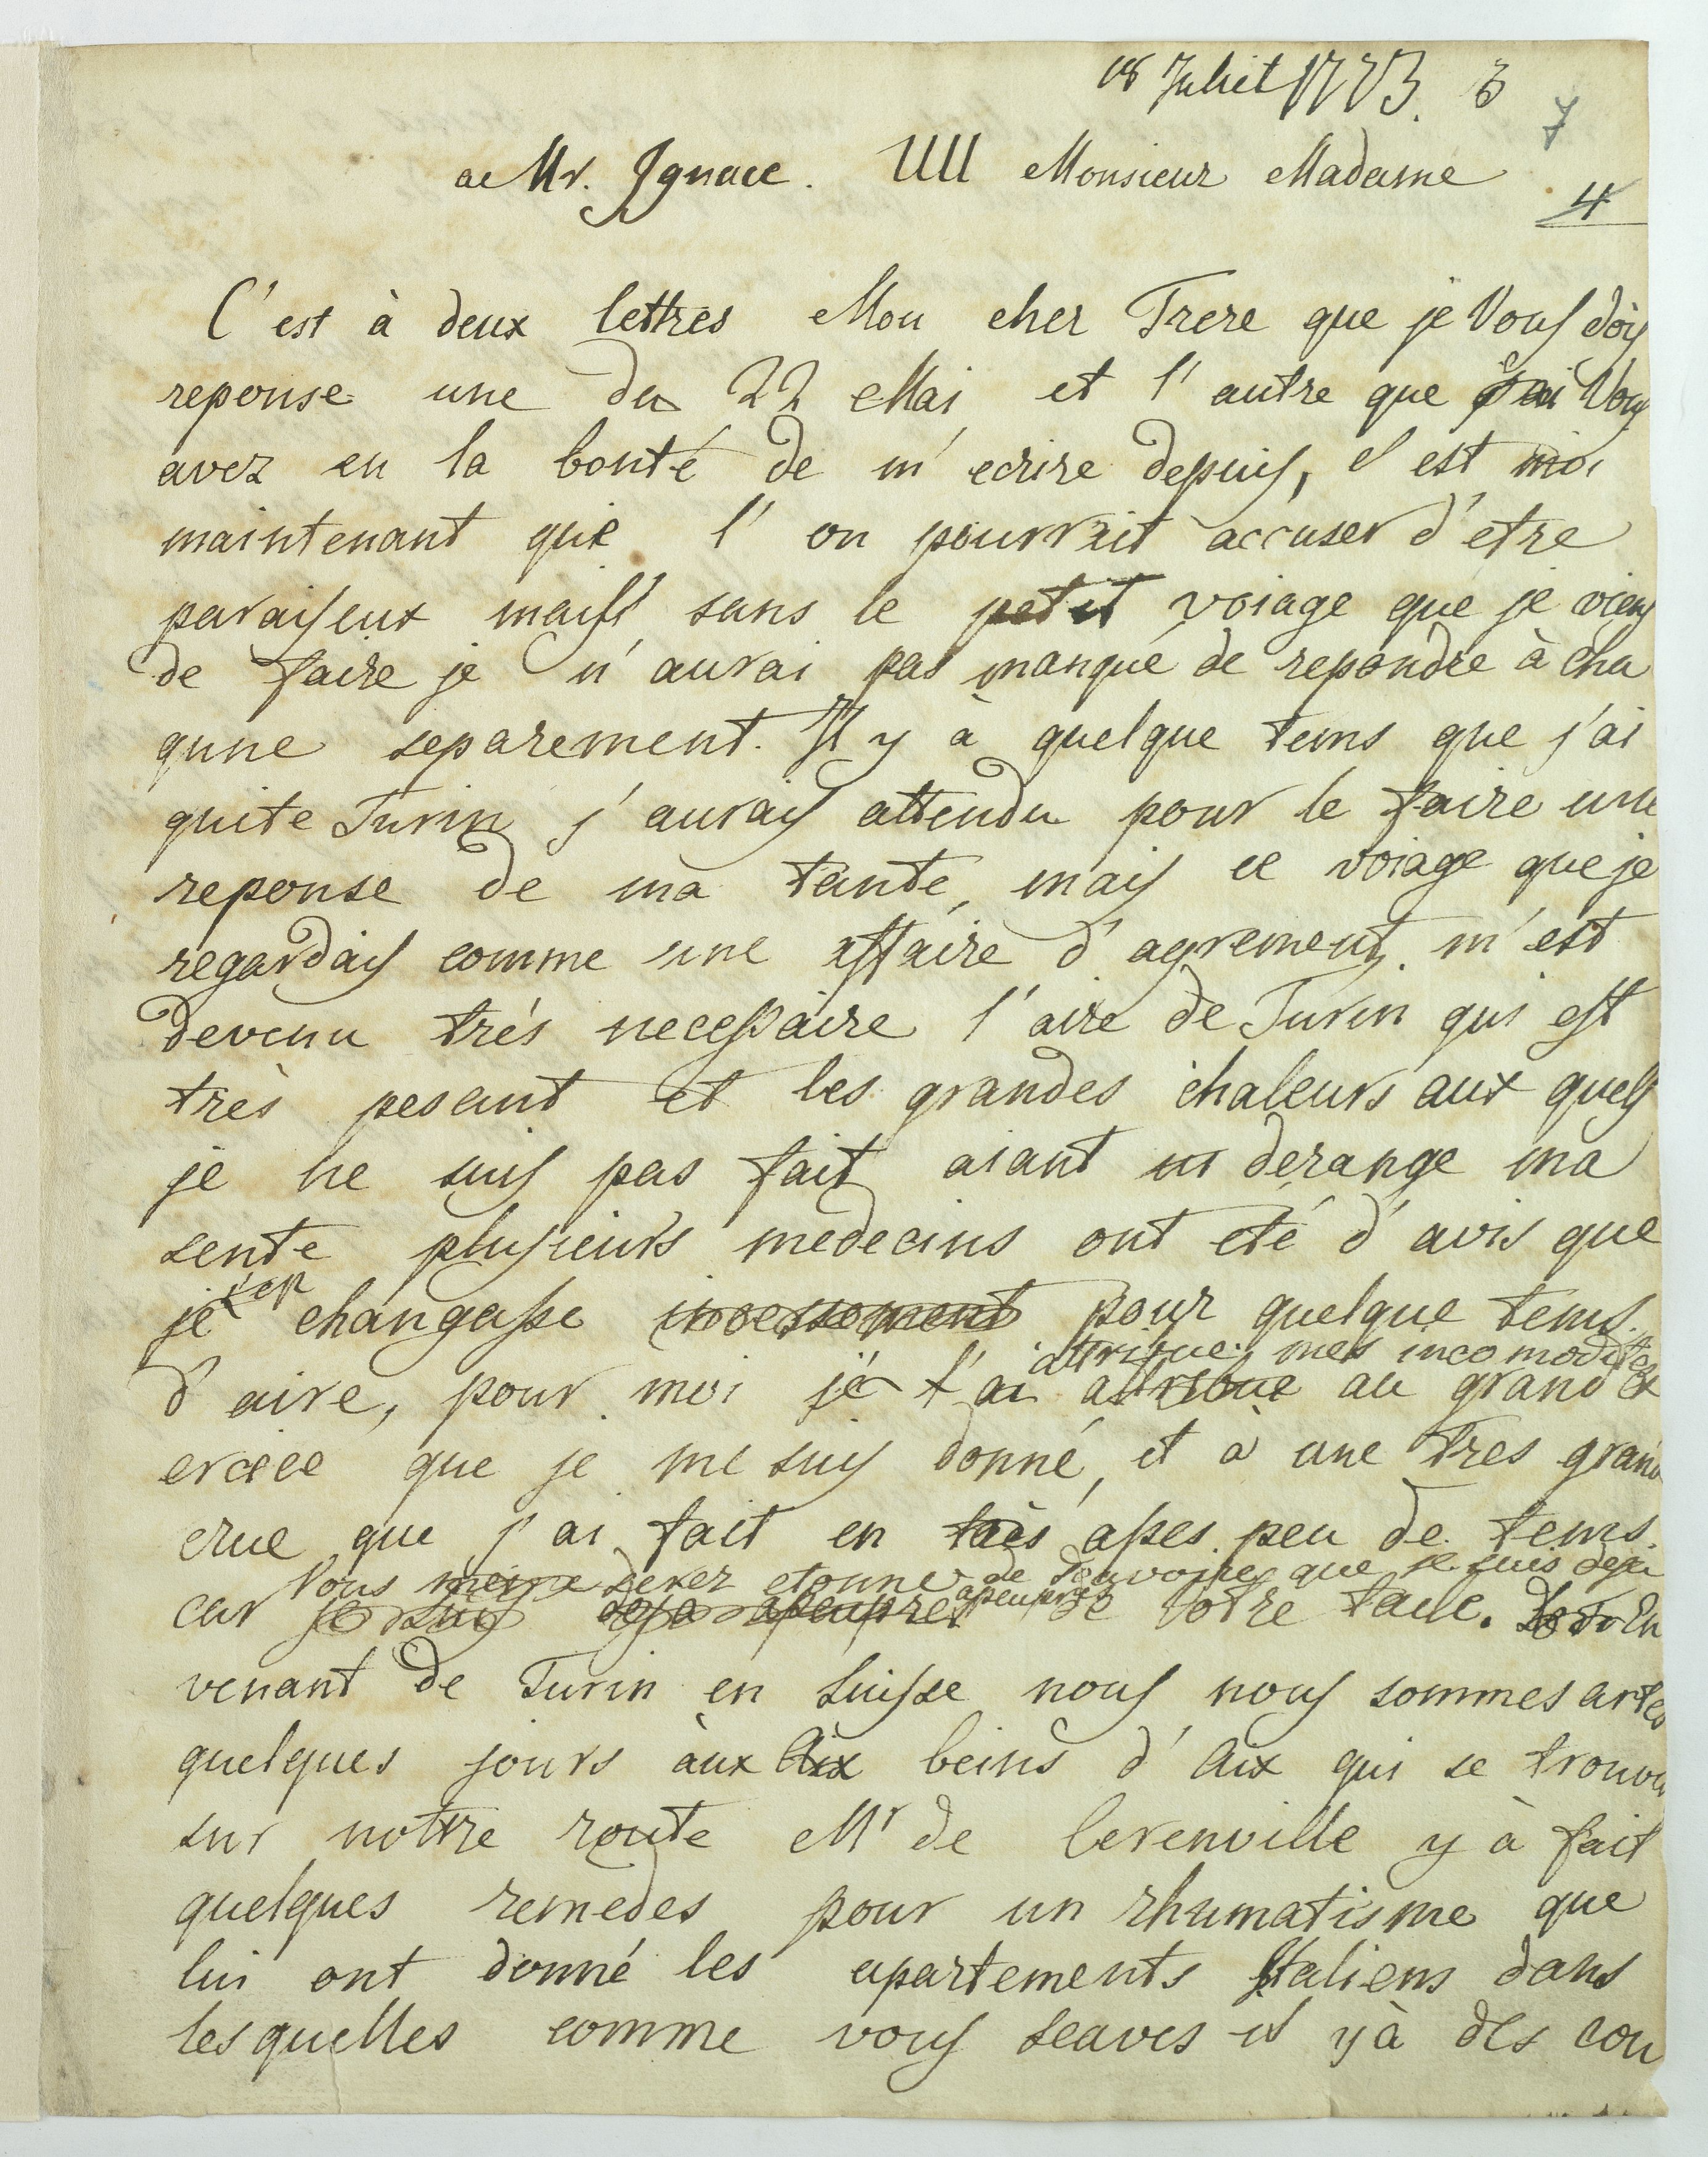 18 Juliet 1773. 6
7
a Mr. Ignace. Monsieur Madame
4
C'est à deux lettres Mon cher Frere que je Vous dois
reponse une du 22 Mai et l'autre que j'ai Vous
avez eu la bonté de m'ecrire depuis, c'est moi
maintenant que l'on pourrait accuser d'etre
paraiseux mais sans le petit voiage que je viens
de faire je n'aurai pas manqué de repondre à cha
qune separement. Il y à quelque tems que j'ai
quite Turin j'aurais attendu pour le faire une
reponse de ma tante, mais ce voiage que je
regardais comme une affaire d'agrement m'est
devenu trés necessaire l'aire de Turin qui est
très pesant et les grandes chaleurs aux quels
je ne suis pas fait aiant derange ma
sente plusieurs medecins ont eté d'avis que
je changasse incessament pour quelque tems
attribue mes incomodites
d'aire, pour moi je l'ai attribue au grand ex
ercice que je me suis donné, et à une tres grand
crue que j'ai fait en très asses peu de tems.
Vous meme serez etonne de savoire que je suis deja
car je suis deja apeupres apeupres de votre taile. En
venant de Turin en Suisse nous nous sommes artes
quelques jours àux Aix beins d'Aix qui se trouve
sur nottre route Mr de Cerenville y à fait
quelques remedes pour un rhumatisme que
lui ont donné les apartements Italiens dans
les quelles comme vous scaves il y à des cou